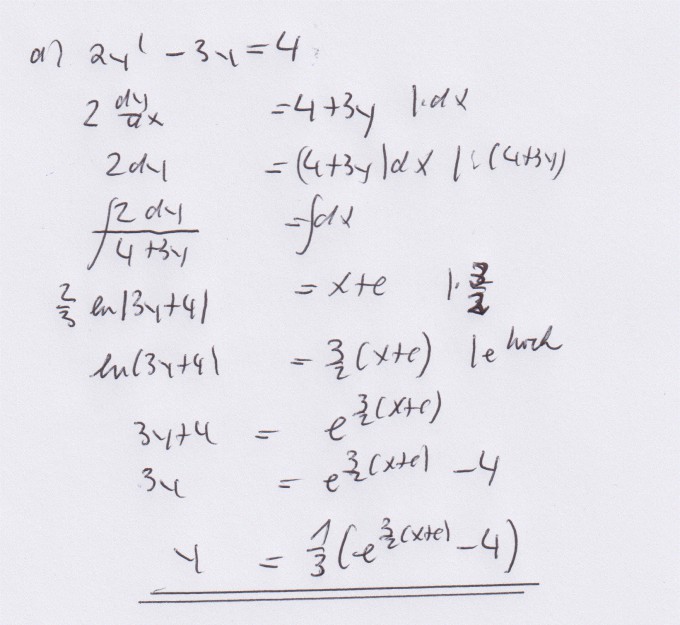 a) 2y' - 3y = 4
2 dy/dx = 4+3y |·dx
2dy = (4+3y)dx |:(4+3y)
∫ 2 dy / 4+3y = ∫dx
2/3 ln|3y+4| = x+c |· 3/2
ln(3y+4) = 3/2 (x+c) |e hoch
3y+4 = e^(3/2(x+c))
3y = e^(3/2(x+c)) - 4
y = 1/3 (e^(3/2(x+c)) - 4)